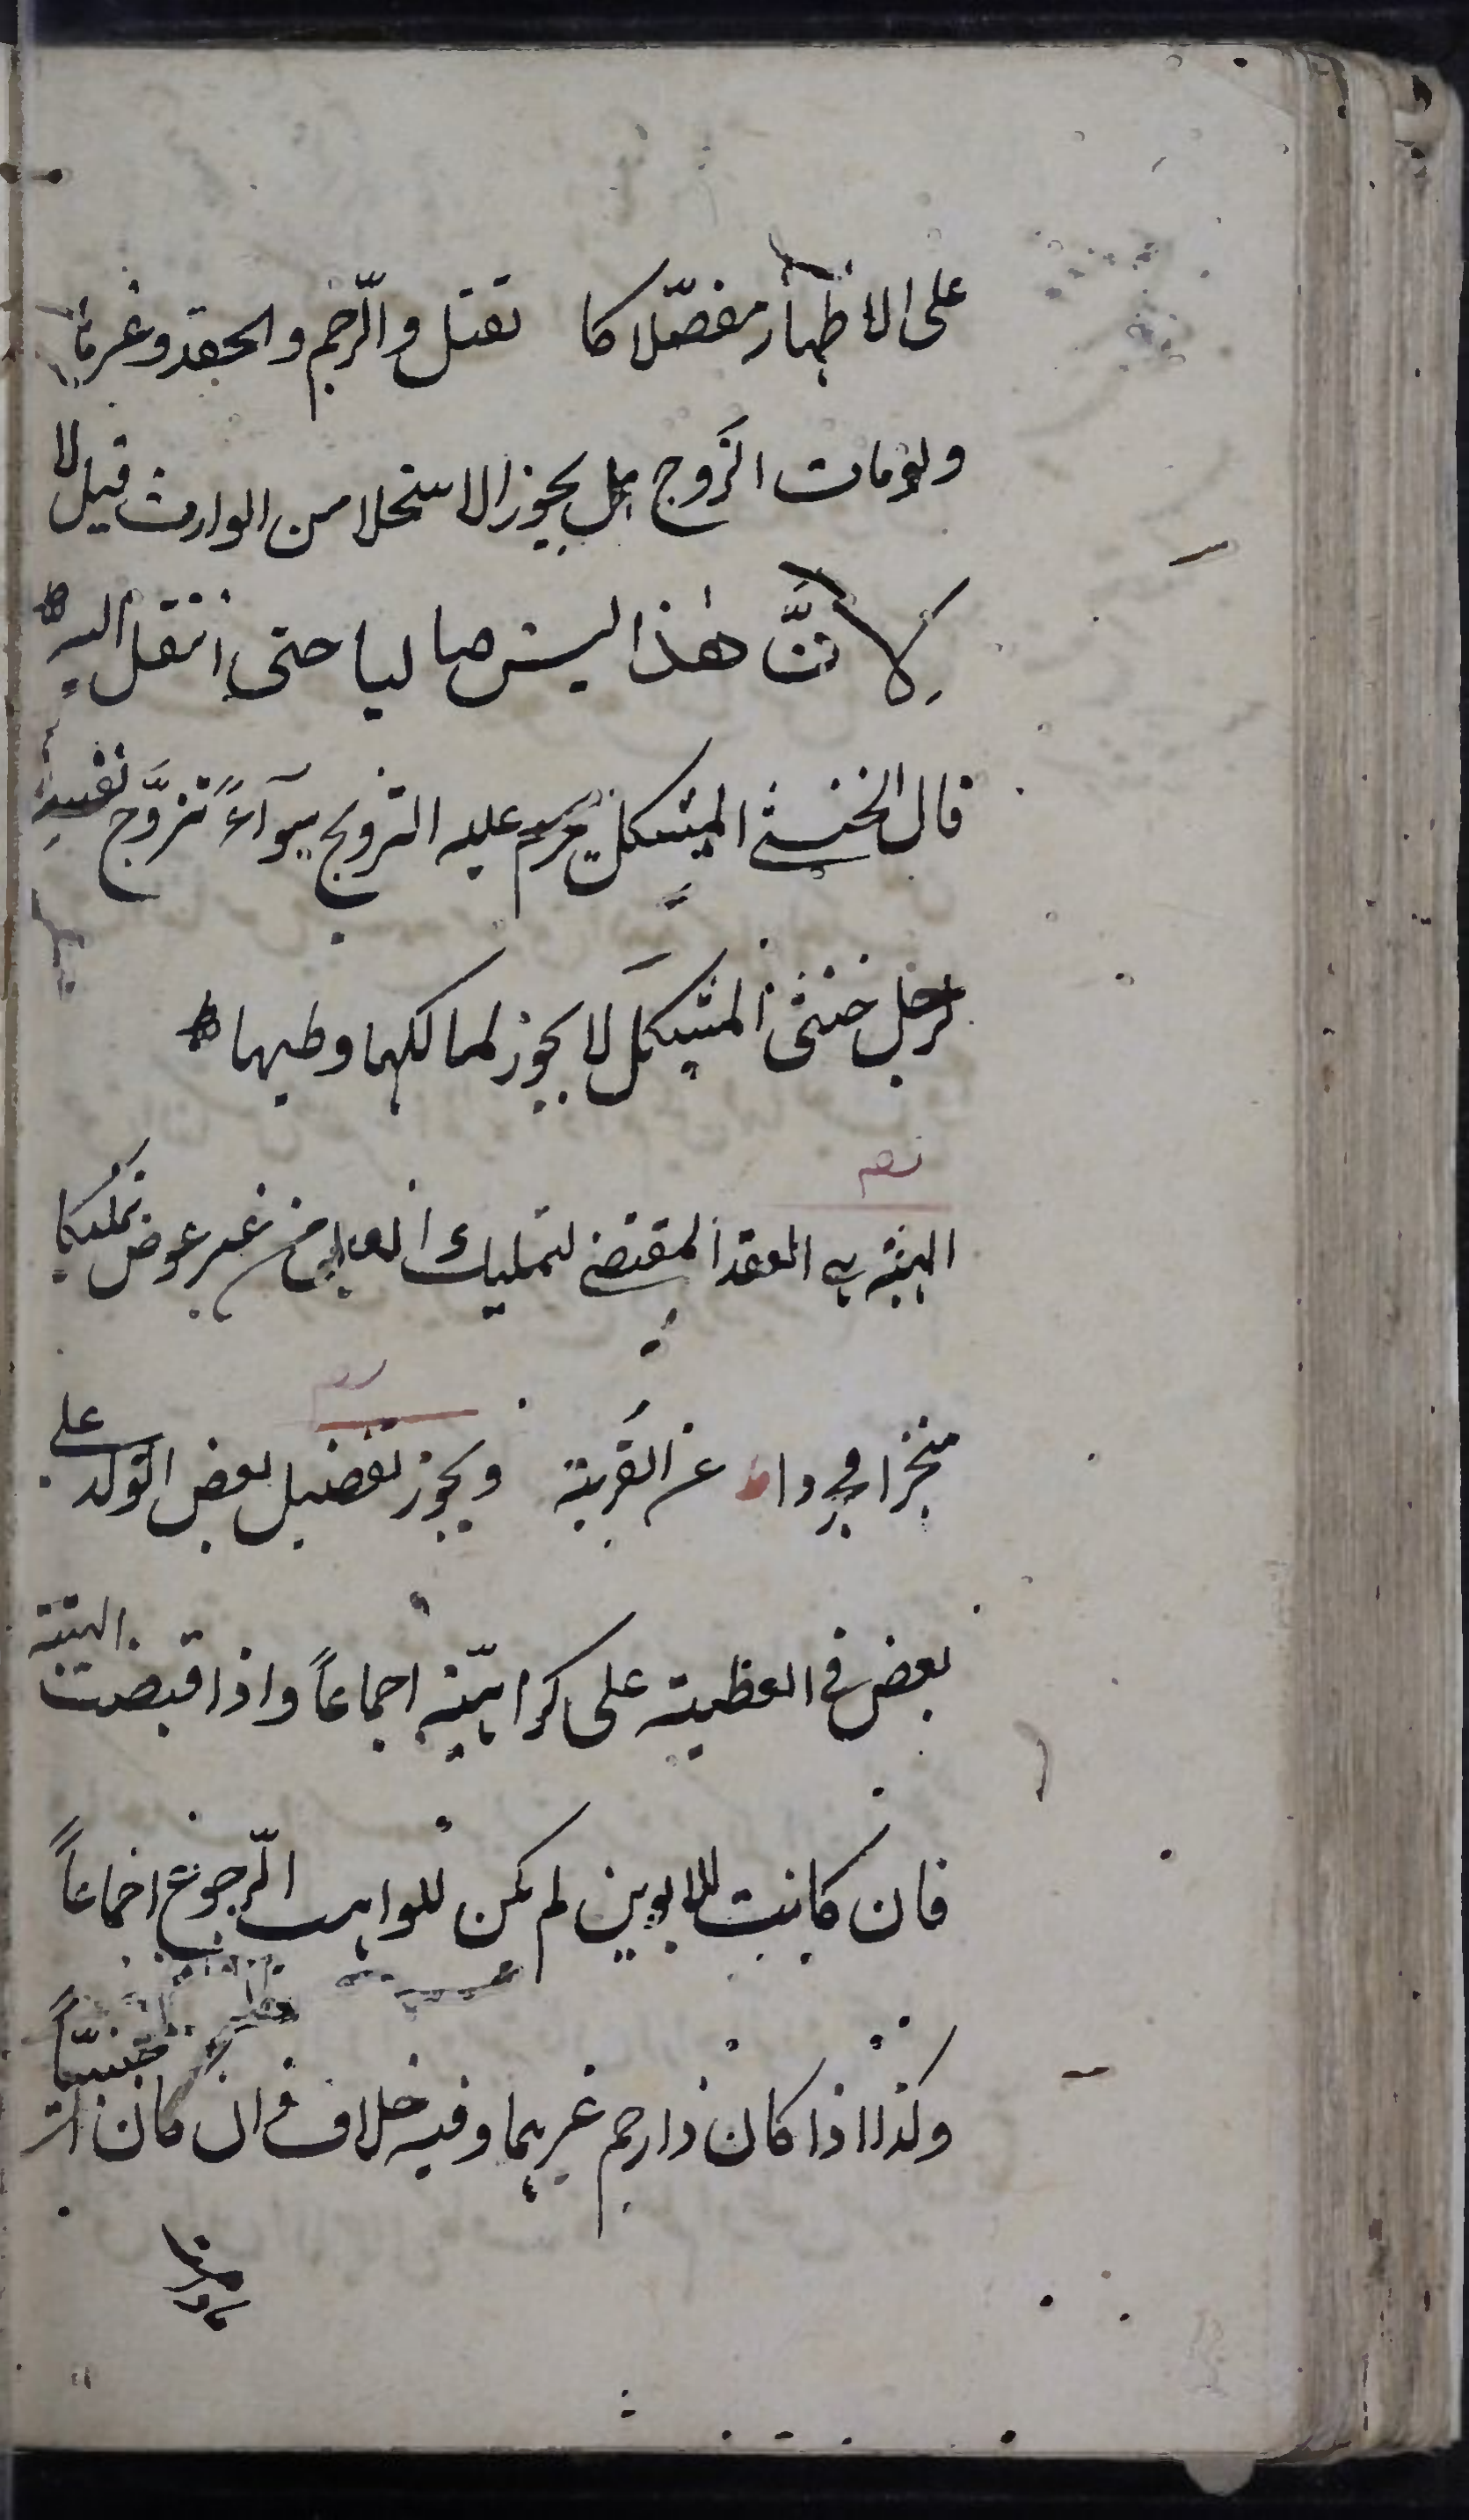 على الاظهار مفصّلا كا لقتل والرّجم والحقد وغيرها
ولومات الزَوج هل يجوز الاستحلا من الوارث قيل لا
لانَّ هٰذا ليس ماليا حتى انتقل اليه
قال الخنثى المشكل يحرم عليه التزويج سوآءً تزوَّج
لرجل خنثى المشكل لا يجوز لمالكها وطيها
الهبة هي العقد المقتضى لتمليك العين من غير عوض تمليكا
منجزا مجردا عن القربة ويجوز تفضيل بعض الولد على
بعض في العطية على كراهيّة اجماعاً واذا قبضت الهبة
فان كانت للابوين لم يكن للواهب الرّجوع اجماعاً
وكذا اذا كان ذا رحم غيرهما وفيه خلاف فان كان اجنبيّاً